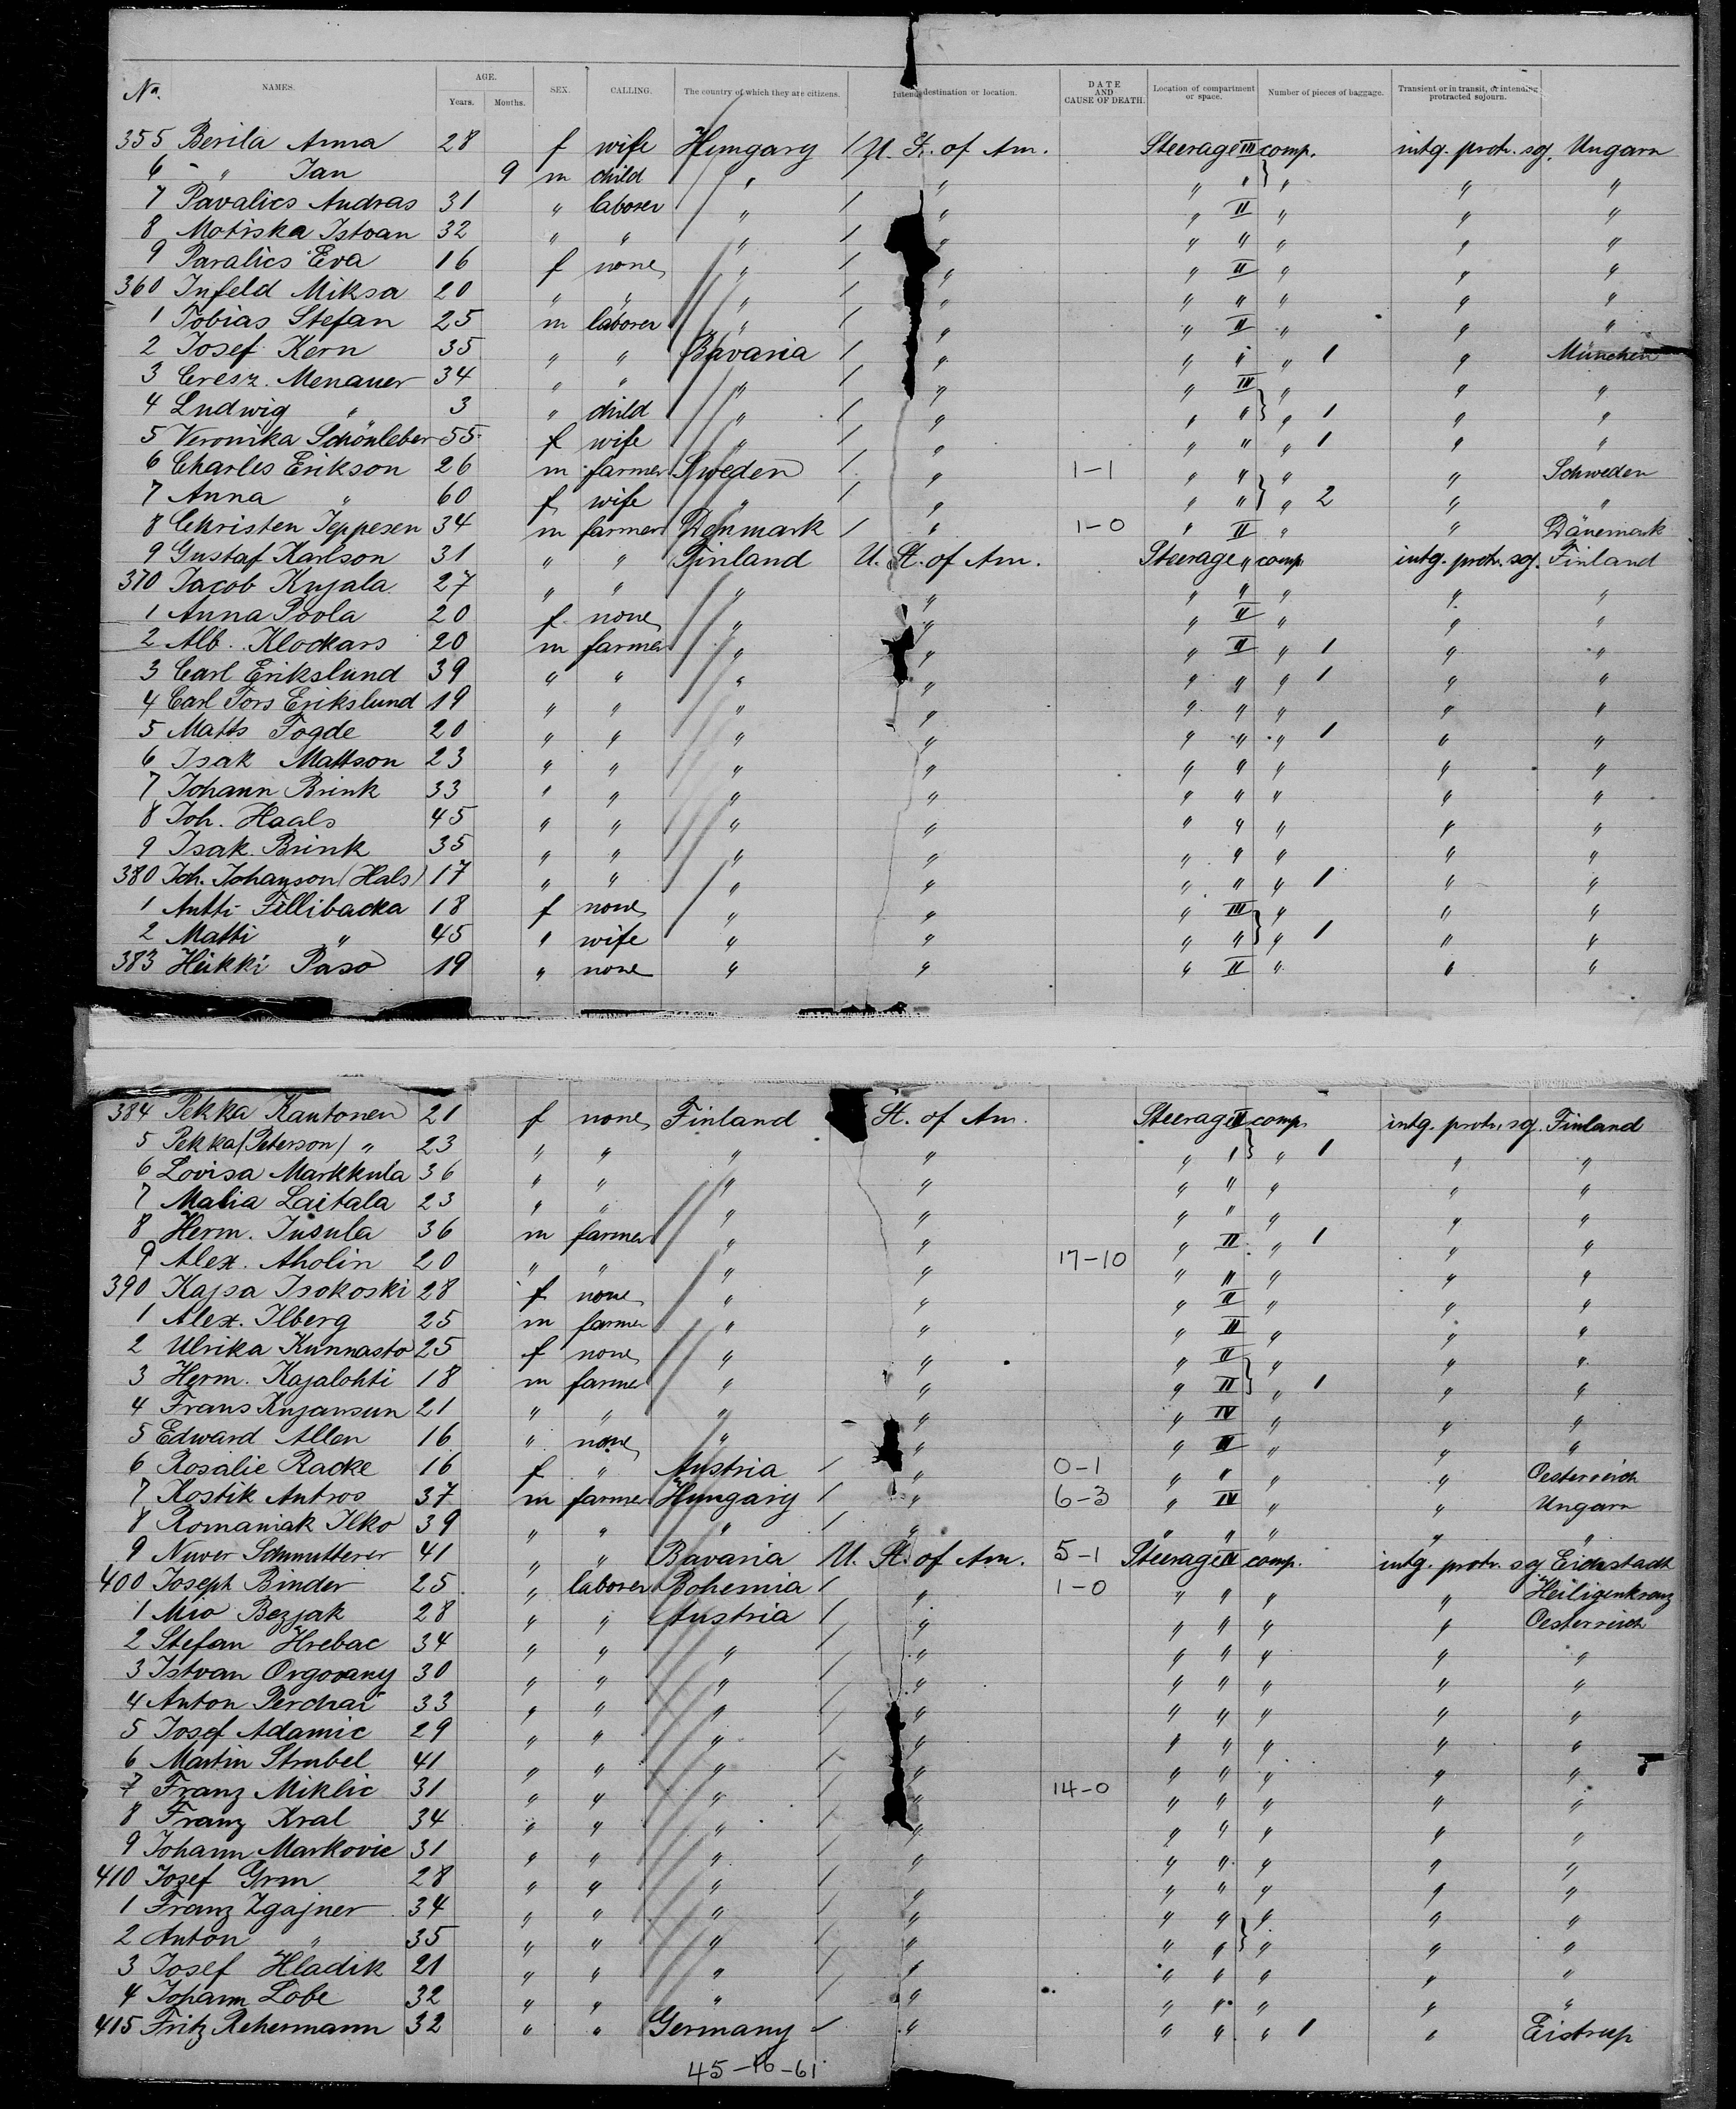 No. NAMES. AGE. Years. Months. SEX. CALLING. The country of which they are citizens. Intended destination or location. DATE AND CAUSE OF DEATH. Location of compartment or space. Number of pieces of baggage. Transient or in transit, or intending protracted sojourn.
355 Berila Anna 28 f wife Hungary / U. St. of Am. Steerage III comp. intg. protr. soj. Ungarn
6 " Jan 9 m child " / " " " } " " "
7 Pavalics Andras 31 " laborer " / " " II " " "
8 Motiska Istvan 32 " " " / " " " " " "
9 Paralics Eva 16 f none " / " " II " " "
360 Infeld Miksa 20 " " " / " " " " " "
1 Tobias Stefan 25 m laborer " / " " II " " "
2 Josef Kern 35 " " Bavaria / " " " " 1 " München
3 Cresz. Menauer 34 " " " / " " III " " "
4 Ludwig " 3 " child " / " " " } " 1 " "
5 Veronika Schönleber 55 f wife " / " " " " 1 " "
6 Charles Erikson 26 m farmer Sweden / " 1-1 " " " " Schweden
7 Anna " 60 f wife " / " " " } " 2 " "
8 Christen Jeppesen 34 m farmer Denmark / " 1-0 " II " " Dänemark
9 Gustaf Karlson 31 " " Finland U. St. of Am. Steerage " comp. intg. protr. soj. Finland
370 Jacob Kujala 27 " " " " " " " " "
1 Anna Poola 20 f none " " " II " " "
2 Alb. Klockars 20 m farmer " " " II " 1 " "
3 Carl Erikslund 39 " " " " " " " 1 " "
4 Carl Tors Erikslund 19 " " " " " " " " "
5 Matts Fogde 20 " " " " " " " 1 " "
6 Isak Mattson 23 " " " " " " " " "
7 Johann Brink 33 " " " " " " " " "
8 Joh. Haals 45 " " " " " " " " "
9 Isak Brink 35 " " " " " " " " "
380 Joh. Johanson (Hals) 17 " " " " " " " 1 " "
1 Antti Fillibacka 18 f none " " " III " " "
2 Matti " 45 " wife " " " " } " 1 " "
383 Heikki Paso 19 " none " " " II " " "
384 Pekka Kautonen 21 f none Finland St. of Am. Steerage II comp. intg. protr. soj. Finland
5 Pekka (Peterson) " 23 " " " " " " } " 1 " "
6 Lovisa Markkula 36 " " " " " " " " "
7 Malia Laitala 23 " " " " " " " " "
8 Herm. Jusula 36 m farmer " " " II " 1 " "
9 Alex. Aholin 20 " " " " 17-10 " " " " "
390 Kajsa Isokoski 28 f none " " " II " " "
1 Alex. Ilberg 25 m farmer " " " II " " "
2 Ulrika Kunnasto 25 f none " " " II " " "
3 Herm. Kajalohti 18 m farmer " " " II } " 1 " "
4 Frans Kujansun 21 " " " " " IV " " "
5 Edward Allen 16 " none " " " III " " "
6 Rosalie Racke 16 f " Austria / " 0-1 " " " " Oesterreich
7 Kostik Antros 37 m farmer Hungary / " 6-3 " IV " " Ungarn
8 Romaniak Ilko 39 " " " / " " " " " "
9 Nuver Schmutterer 41 " " Bavaria U. St. of Am. 5-1 Steerage II comp. intg. protr. soj Eichstadt
400 Joseph Binder 25 " laborer Bohemia / " 1-0 " " " " Heiligenkreuz
1 Mio Bezjak 28 " " Austria / " " " " " Oesterreich
2 Stefan Hrebac 34 " " " / " " " " " "
3 Istvan Orgovany 30 " " " / " " " " " "
4 Anton Perchai 33 " " " / " " " " " "
5 Josef Adamic 29 " " " / " " " " " "
6 Martin Strubel 41 " " " / " " " " " "
7 Franz Miklic 31 " " " / " 14-0 " " " " "
8 Franz Kral 34 " " " / " " " " " "
9 Johann Markovic 31 " " " / " " " " " "
410 Josef Grm 28 " " " / " " " " " "
1 Franz Zgajner 34 " " " / " " " " " "
2 Anton " 35 " " " / " " " } " " "
3 Josef Hladik 21 " " " / " " " " " "
4 Johann Lobe 32 " " " / " " " " " "
415 Fritz Rehermann 32 " " Germany / " " " " 1 " Eistrup
45-16-61